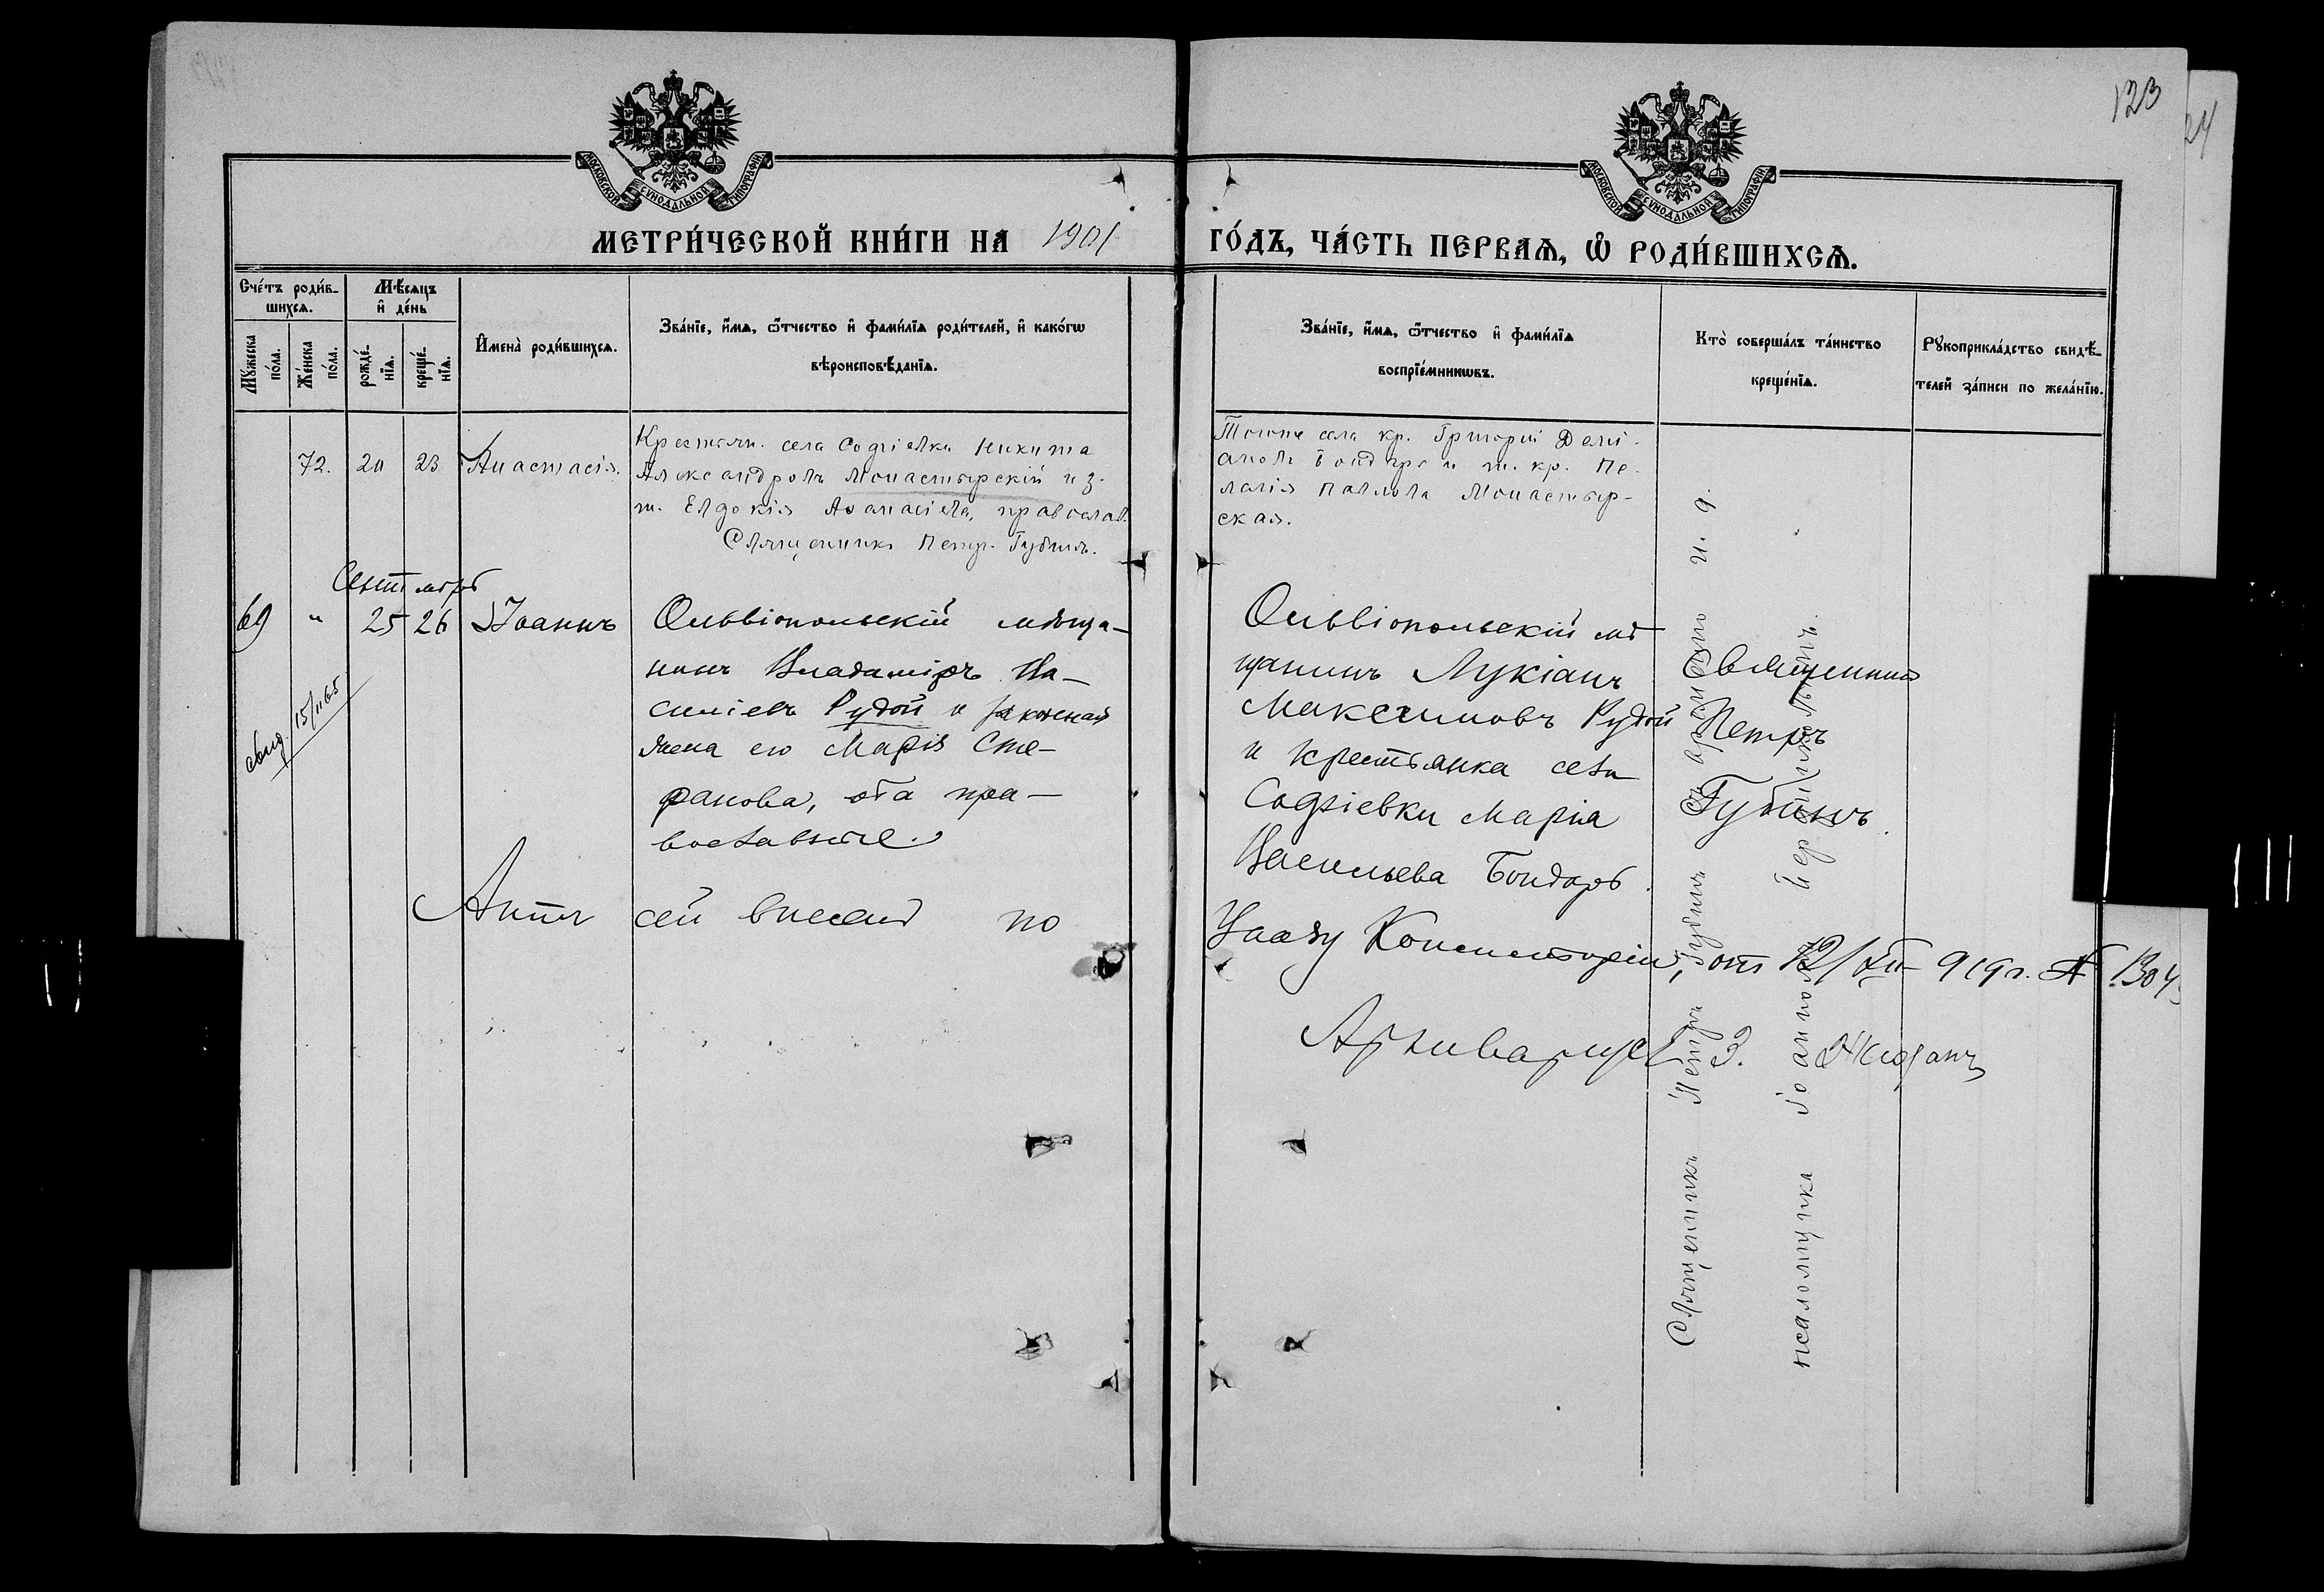 123
24
МОСКОВСКОЙ СѴНОДАЛЬНОЙ ТИПОГРАФІИ
МОСКОВСКОЙ СѴНОДАЛЬНОЙ ТИПОГРАФІИ
МЕТРИ́ЧЕСКОЙ КНИ́ГИ НА 1901
ГО́ДЪ, ЧА́СТЬ ПЕРВАѦ, Ѡ҆ РОДИ́ВШИХСѦ.
Счѐтъ роди́в-
шихсѧ.
Мꙋ́жеска по́ла.
Же́нска по́ла.
Мѣ́сѧцъ
и҆ де́нь
рожде́-
нїѧ.
креще́-
нїѧ.
И҆мена̀ роди́вшихсѧ.
Зва́нїе, и҆́мѧ, ѻ҆́тчество и҆ фами́лїѧ роди́телей, и҆ како́гѡ
вѣроисповѣ́данїѧ.
Зва́нїе, и҆́мѧ, ѻ҆́тчество и҆ фами́лїѧ
воспрїе́мникѡвъ.
Кто̀ соверша́лъ та́инство
креще́нїѧ.
Рꙋкоприкла́дство свидѣ́-
телей за́писи по жела́нїю.
72. 20 23 Анастасія.
Крестьян. села Софіевки Никита
Александровъ Монастырскій и з.
ж. Евдокія Аѳанасіева, православ.
Священникъ Петръ Губинъ.
Тогоже села кр. Григорій Дамі-
ановъ Бондарь и ж. кр. Пе-
лагія Павлова Монастыр-
ская.
Сентябрь
69 " 25 26 Іоаннъ
Ольвіопольскій мѣща-
нинъ Владиміръ Ва-
силіевъ Рудой и законная
жена его Марія Сте-
фанова, оба пра-
вославные.
свид. 15/II 65
Ольвіопольскій мѣ
щанинъ Лукіанъ
Максимовъ Рудой
и крестьянка села
Софіевки Марія
Васильева Бондарь.
Священникъ
Петръ
Губинъ.
Актъ сей внесенъ по
Указу Консисторіи, отъ 12/XII 919 г. № 1304
Архиваріусъ З. Жидганъ
Священникъ Петръ Губинъ съ
псаломщика Іоанномъ